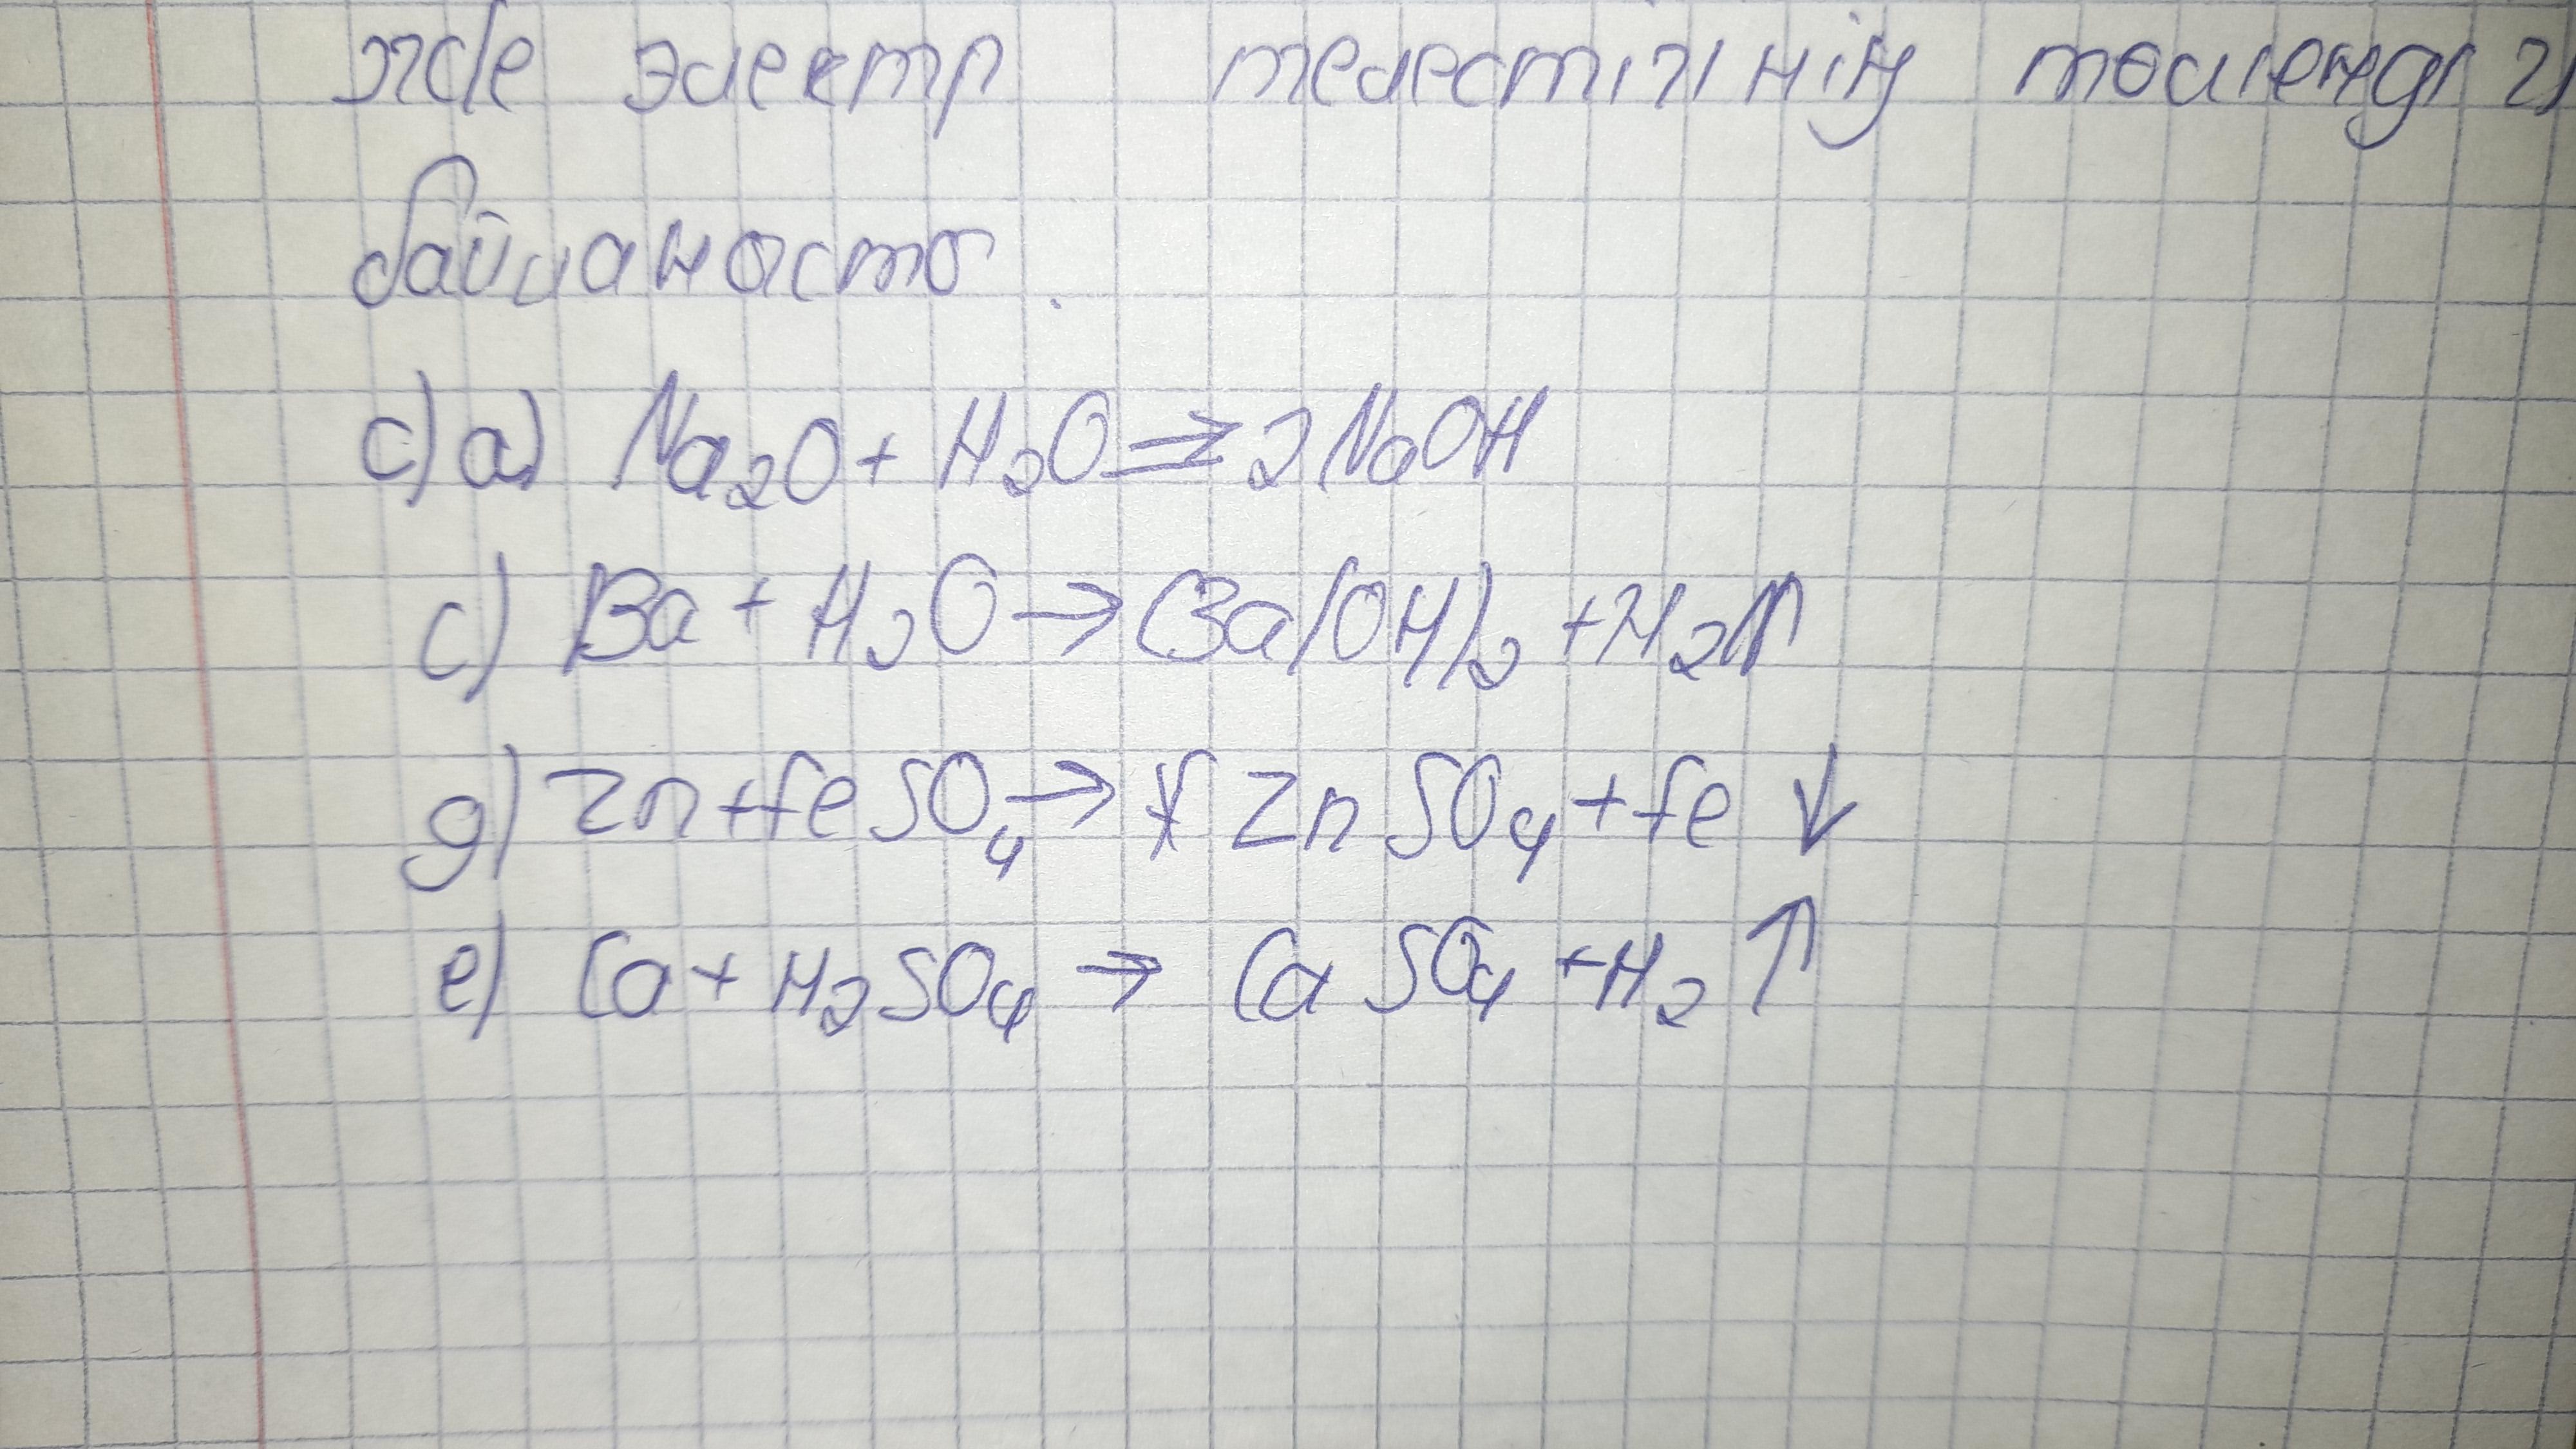 және электр терістігінің төмендігі
байланысты.
c) a) Na₂O + H₂O ⇒ 2NaOH
c) Ba + H₂O → Ba(OH)₂ + H₂↑
g) Zn + FeSO₄ → ZnSO₄ + Fe ↓
e) Ca + H₂SO₄ → CaSO₄ + H₂ ↑